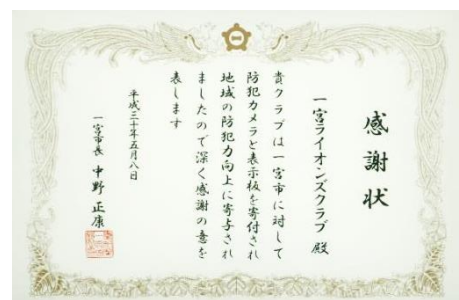 感謝状
一宮ライオンズクラブ 殿
貴クラブは一宮市に対して
防犯カメラと表示板を寄付され
地域の防犯力向上に寄与され
ましたので深く感謝の意を
表します
平成三十年五月八日
一宮市長 中野正康